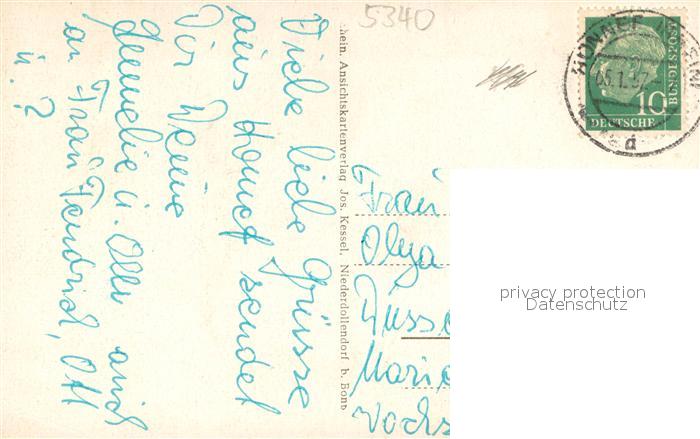 5340
Viele liebe Grüsse
aus Honnef sendet
Dir Deine
u. Olli auch
an Frau Fendrich, Ott
u. ?
hein. Ansichtskartenverlag Jos. Kessel, Niederdollendorf b. Bonn
HONNEF
RHEIN
d
10
DEUTSCHE
BUNDESPOST
Frau
Olga
Düsse
Marie
privacy protection
Datenschutz